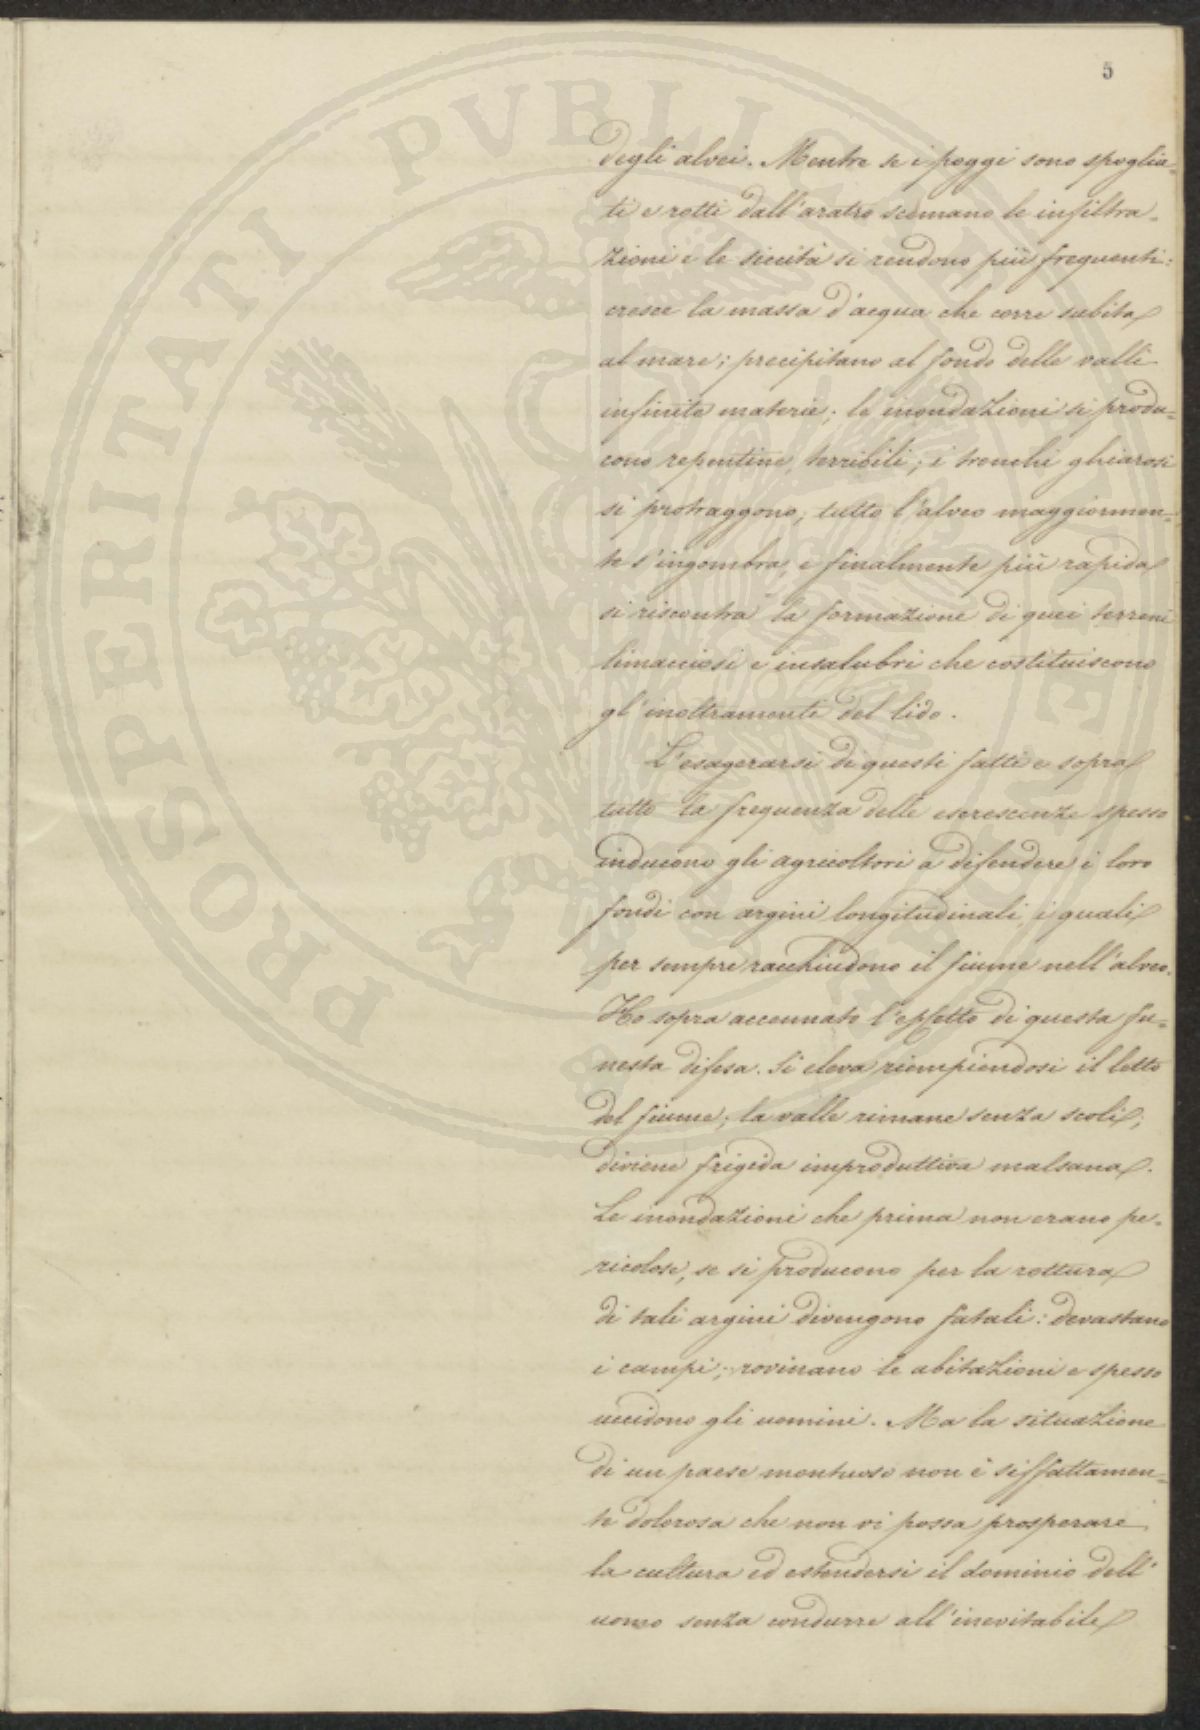 5
degli alvei. Mentre se i poggi sono spoglia-
ti e rotti dall'aratro scemano le infiltra-
zioni e le siccità si rendono più frequenti:
cresce la massa d'acqua che corre subita
al mare; precipitano al fondo delle valli
infinite materie; le inondazioni si produ-
cono repentine, terribili; i tronchi ghiarosi
si protraggono; tutto l'alveo maggiormen-
te s'ingombra, e finalmente più rapida
si riscontra la formazione di quei terreni
limacciosi e insalubri che costituiscono
gl'inoltramenti del lido.
L'esagerarsi di questi fatti e sopra
tutto la frequenza delle escrescenze spesso
inducono gli agricoltori a difendere i loro
fondi con argini longitudinali, i quali
per sempre racchiudono il fiume nell'alveo.
Ho sopra accennato l'effetto di questa fu-
nesta difesa. Si eleva riempiendosi il letto
del fiume; la valle rimane senza scoli;
diviene frigida improduttiva malsana.
Le inondazioni che prima non erano pe-
ricolose, se si producono per la rottura
di tali argini divengono fatali: devastano
i campi; rovinano le abitazioni e spesso
uccidono gli uomini. Ma la situazione
di un paese montuoso non è siffattamen-
te dolorosa che non vi possa prosperare
la cultura ed estendersi il dominio dell'
uomo senza condurre all'inevitabile
PROSPERITATI PVBLICAE